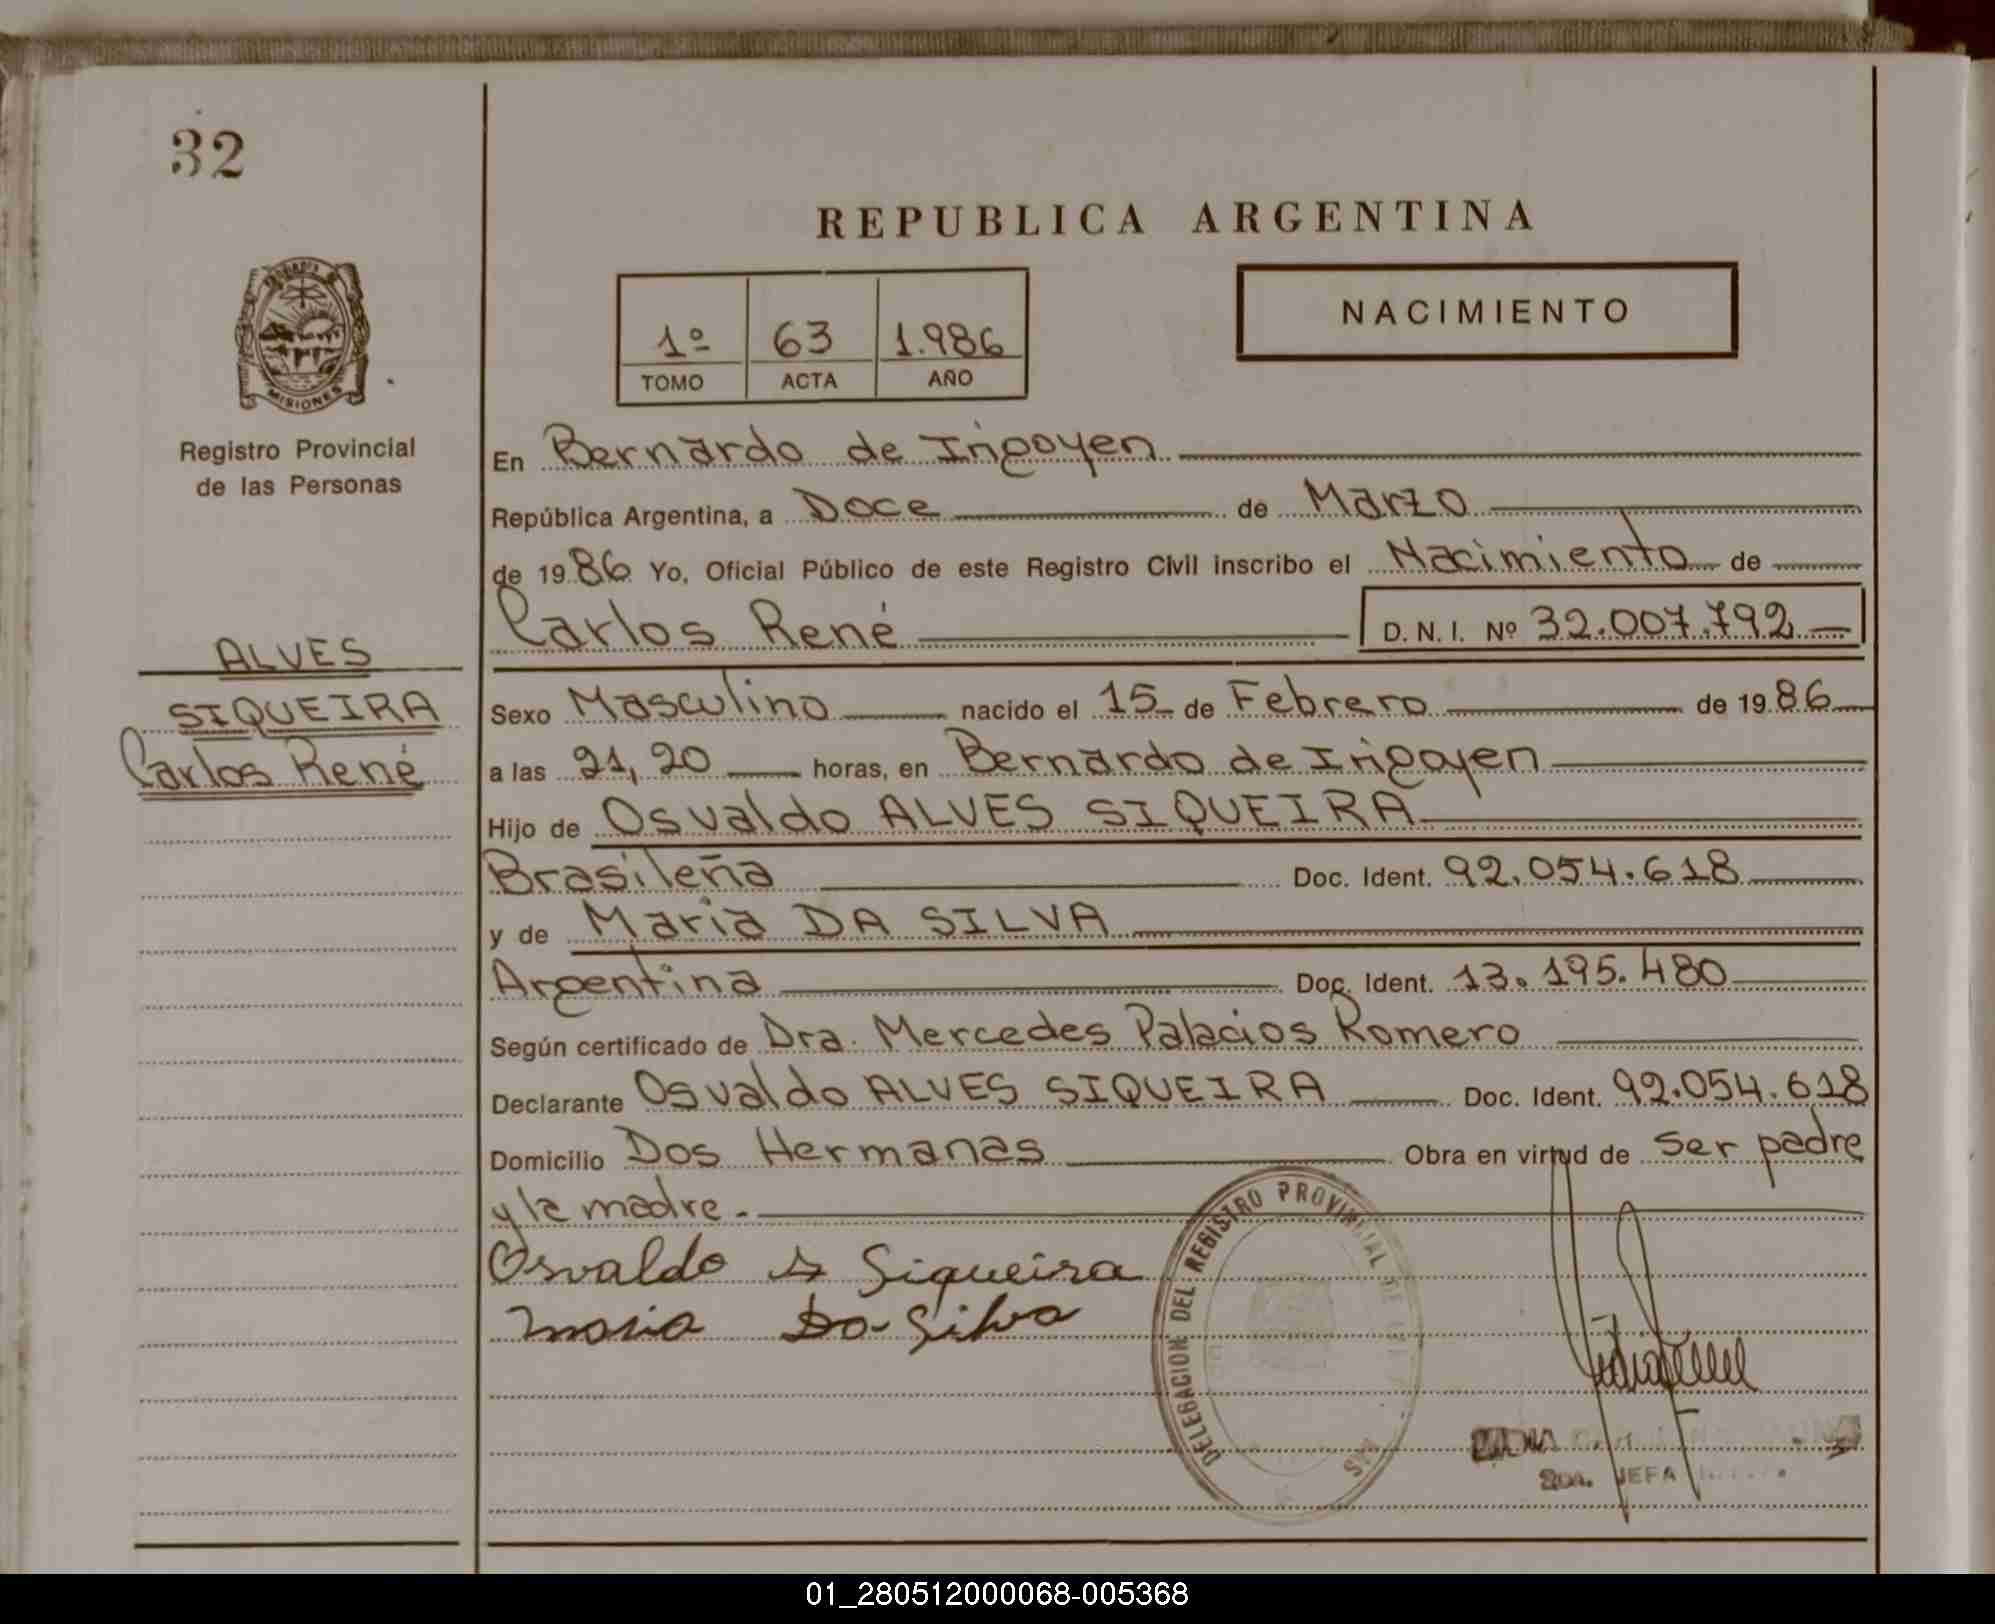 32
REPUBLICA ARGENTINA
NACIMIENTO
1º 63 1.986
TOMO ACTA AÑO
MISIONES
Registro Provincial
de las Personas
ALVES
SIQUEIRA
Carlos René
En Bernardo de Irigoyen
República Argentina, a Doce de Marzo
de 1986 Yo, Oficial Público de este Registro Civil inscribo el Nacimiento de
Carlos René D. N. I. Nº 32.007.792
Sexo Masculino nacido el 15 de Febrero de 1986
a las 21,20 horas, en Bernardo de Irigoyen
Hijo de Osvaldo ALVES SIQUEIRA
Brasileña Doc. Ident. 92.054.618
y de Maria DA SILVA
Argentina Doc. Ident. 13.195.480
Según certificado de Dra. Mercedes Palacios Romero
Declarante Osvaldo ALVES SIQUEIRA Doc. Ident. 92.054.618
Domicilio Dos Hermanas Obra en virtud de ser padre
y la madre.
Osvaldo A Siqueira
Maria Da Silva
DELEGACION DEL REGISTRO PROVINCIAL DE LAS
JEFA
01_280512000068-005368